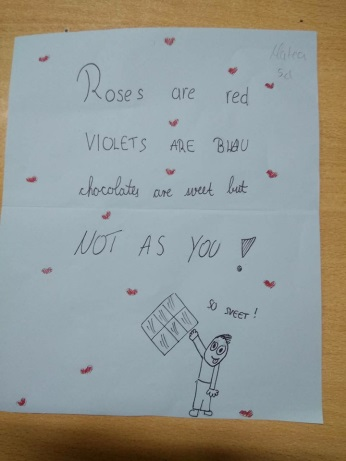 Roses are red
VIOLETS ARE BLAU
chocolates are sweet but
NOT AS YOU!
SO SWEET!
5d